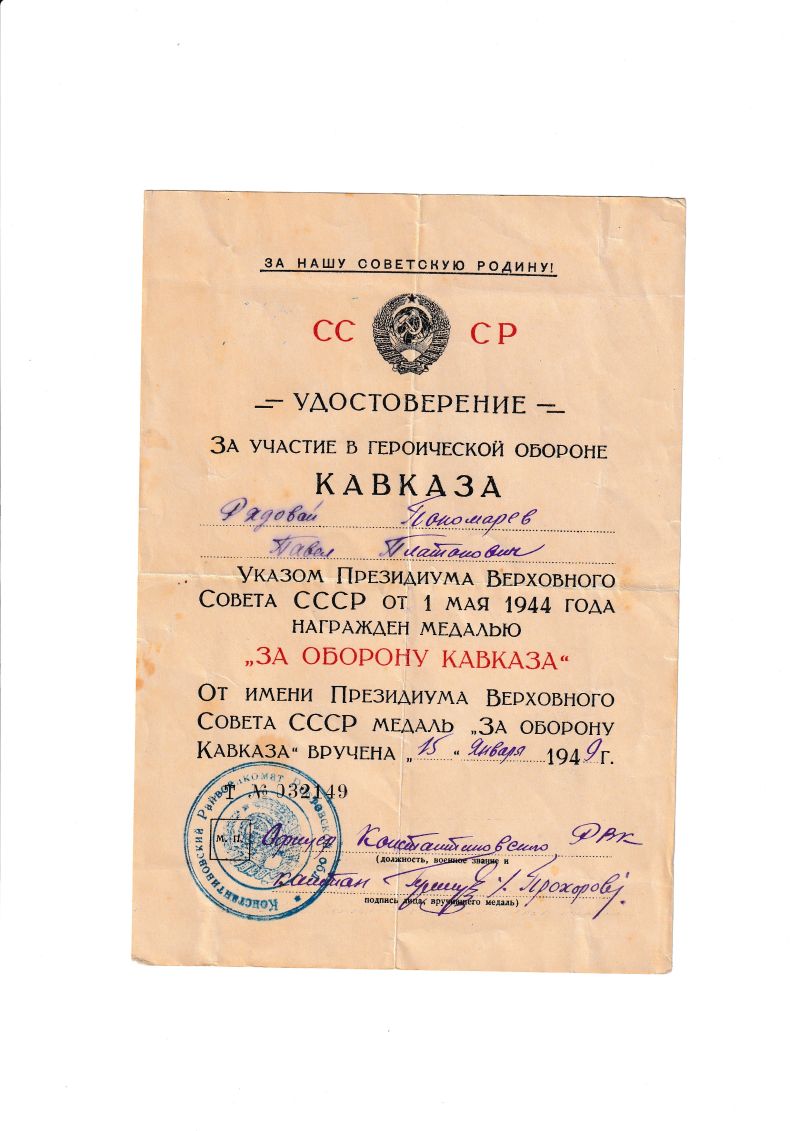 ЗА НАШУ СОВЕТСКУЮ РОДИНУ!
СС СР
УДОСТОВЕРЕНИЕ
ЗА УЧАСТИЕ В ГЕРОИЧЕСКОЙ ОБОРОНЕ
КАВКАЗА
Рядовой Пономарев
Павел Платонович
УКАЗОМ ПРЕЗИДИУМА ВЕРХОВНОГО
СОВЕТА СССР ОТ 1 МАЯ 1944 ГОДА
НАГРАЖДЕН МЕДАЛЬЮ
„ЗА ОБОРОНУ КАВКАЗА“
ОТ ИМЕНИ ПРЕЗИДИУМА ВЕРХОВНОГО
СОВЕТА СССР МЕДАЛЬ „ЗА ОБОРОНУ
КАВКАЗА“ ВРУЧЕНА „15“ января 1949 г.
Т № 032149
Константиновский Райвоенкомат
м. п.
Офицер Константиновского РВК
(должность, военное звание и
капитан /Прохоров/.
подпись лица, вручившего медаль)